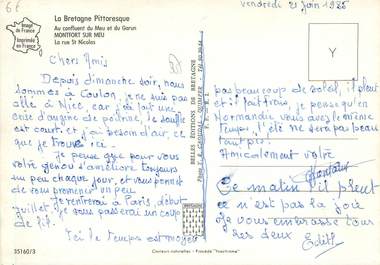 6€
vendredi 21 juin 1985
La Bretagne Pittoresque
Au confluent du Meu et du Garun
MONTFORT SUR MEU
La rue St Nicolas
Image de France
Imprimée en France
Chers Amis
Depuis dimanche soir, nous
sommes à Coulon, je ne suis pas
allé à Nice, car j'ai fait une
crise d'angine de poitrine, le souffle
est court, et j'ai besoin d'air, ce
que je trouve ici.
Je pense que pour vous
votre genou s'améliore toujours
un peu chaque jour, et vous permet
de vous promener un peu
Je rentrerai à Paris, début
juillet, je vous passerai un coup
de fil.
Ici le temps est moyen
BELLES EDITIONS DE BRETAGNE
Y
pas beaucoup de soleil, il pleut
et il fait frais, je pense qu'en
Normandie vous avez le même
temps, l'été ne sera pas beau
tant pis.
Amicalement votre
Ce matin il pleut
ce n'est pas la joie
je vous embrasse tous
les deux Edith
35160/3
BRETAGNE
Couleurs naturelles - Procédé